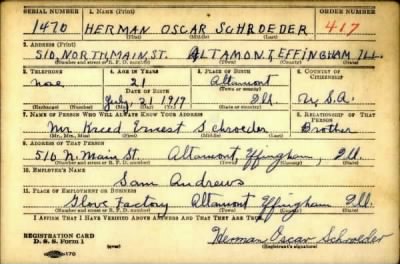 SERIAL NUMBER 1. NAME (Print) ORDER NUMBER
1470 HERMAN OSCAR SCHROEDER 417
(First) (Middle) (Last)
2. ADDRESS (Print)
510 NORTH MAIN ST. ALTAMONT, EFFINGHAM ILL.
(Number and street or R. F. D. number) (Town) (County) (State)
3. TELEPHONE 4. AGE IN YEARS 5. PLACE OF BIRTH 6. COUNTRY OF CITIZENSHIP
21 Altamont
DATE OF BIRTH
July 21 1919 Ill. U.S.A.
(Exchange) (Number) (Mo.) (Day) (Yr.) (State or country)
7. NAME OF PERSON WHO WILL ALWAYS KNOW YOUR ADDRESS 8. RELATIONSHIP OF THAT PERSON
Mr. Ernest Schroeder Brother
(Mr., Mrs., Miss) (First) (Middle) (Last)
9. ADDRESS OF THAT PERSON
510 N. Main St. Altamont, Effingham, Ill.
(Number and street or R. F. D. number) (Town) (County) (State)
10. EMPLOYER'S NAME
Sam Andrews
11. PLACE OF EMPLOYMENT OR BUSINESS
Glove Factory Altamont Effingham Ill.
(Number and street or R. F. D. number) (Town) (County) (State)
I AFFIRM THAT I HAVE VERIFIED ABOVE ANSWERS AND THAT THEY ARE TRUE.
REGISTRATION CARD
D. S. S. Form 1 Herman Oscar Schroeder
(Registrant's signature)